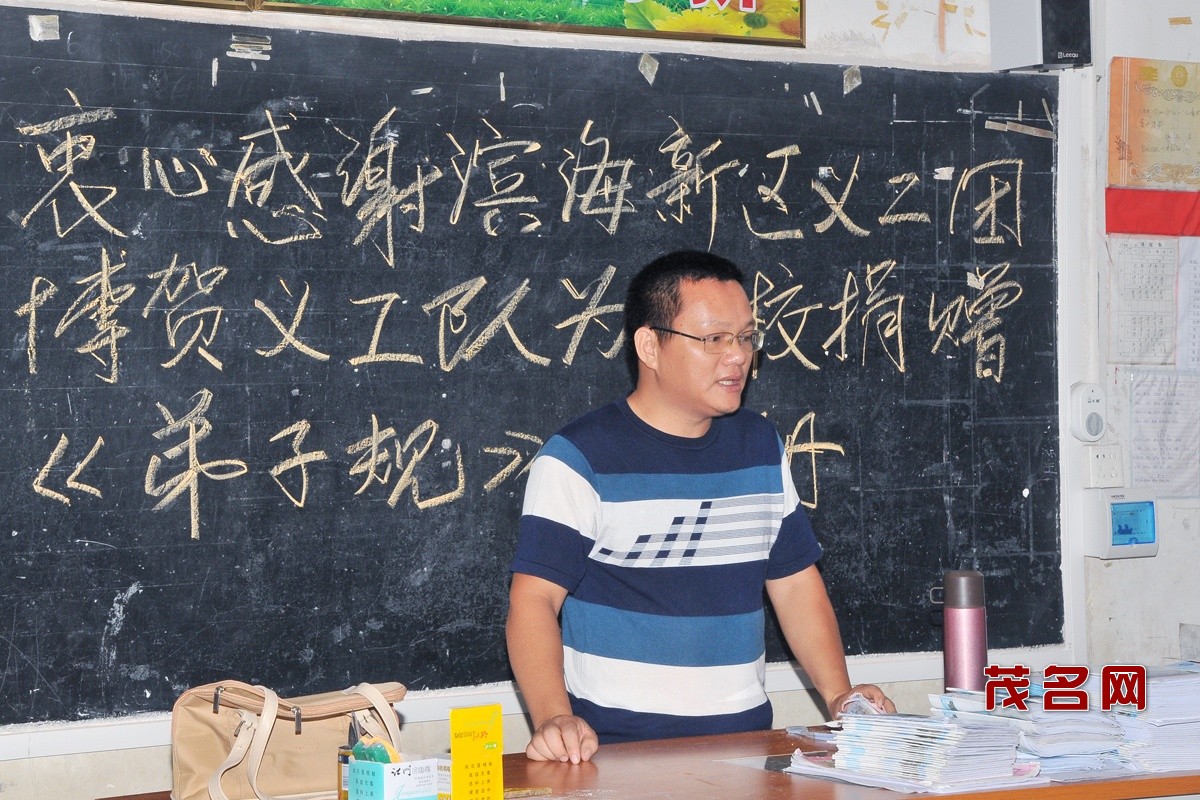 Leequ
衷心感谢滨海新区义工团
博贺义工队为 校捐赠
《弟子规》 册
江门
茂名网